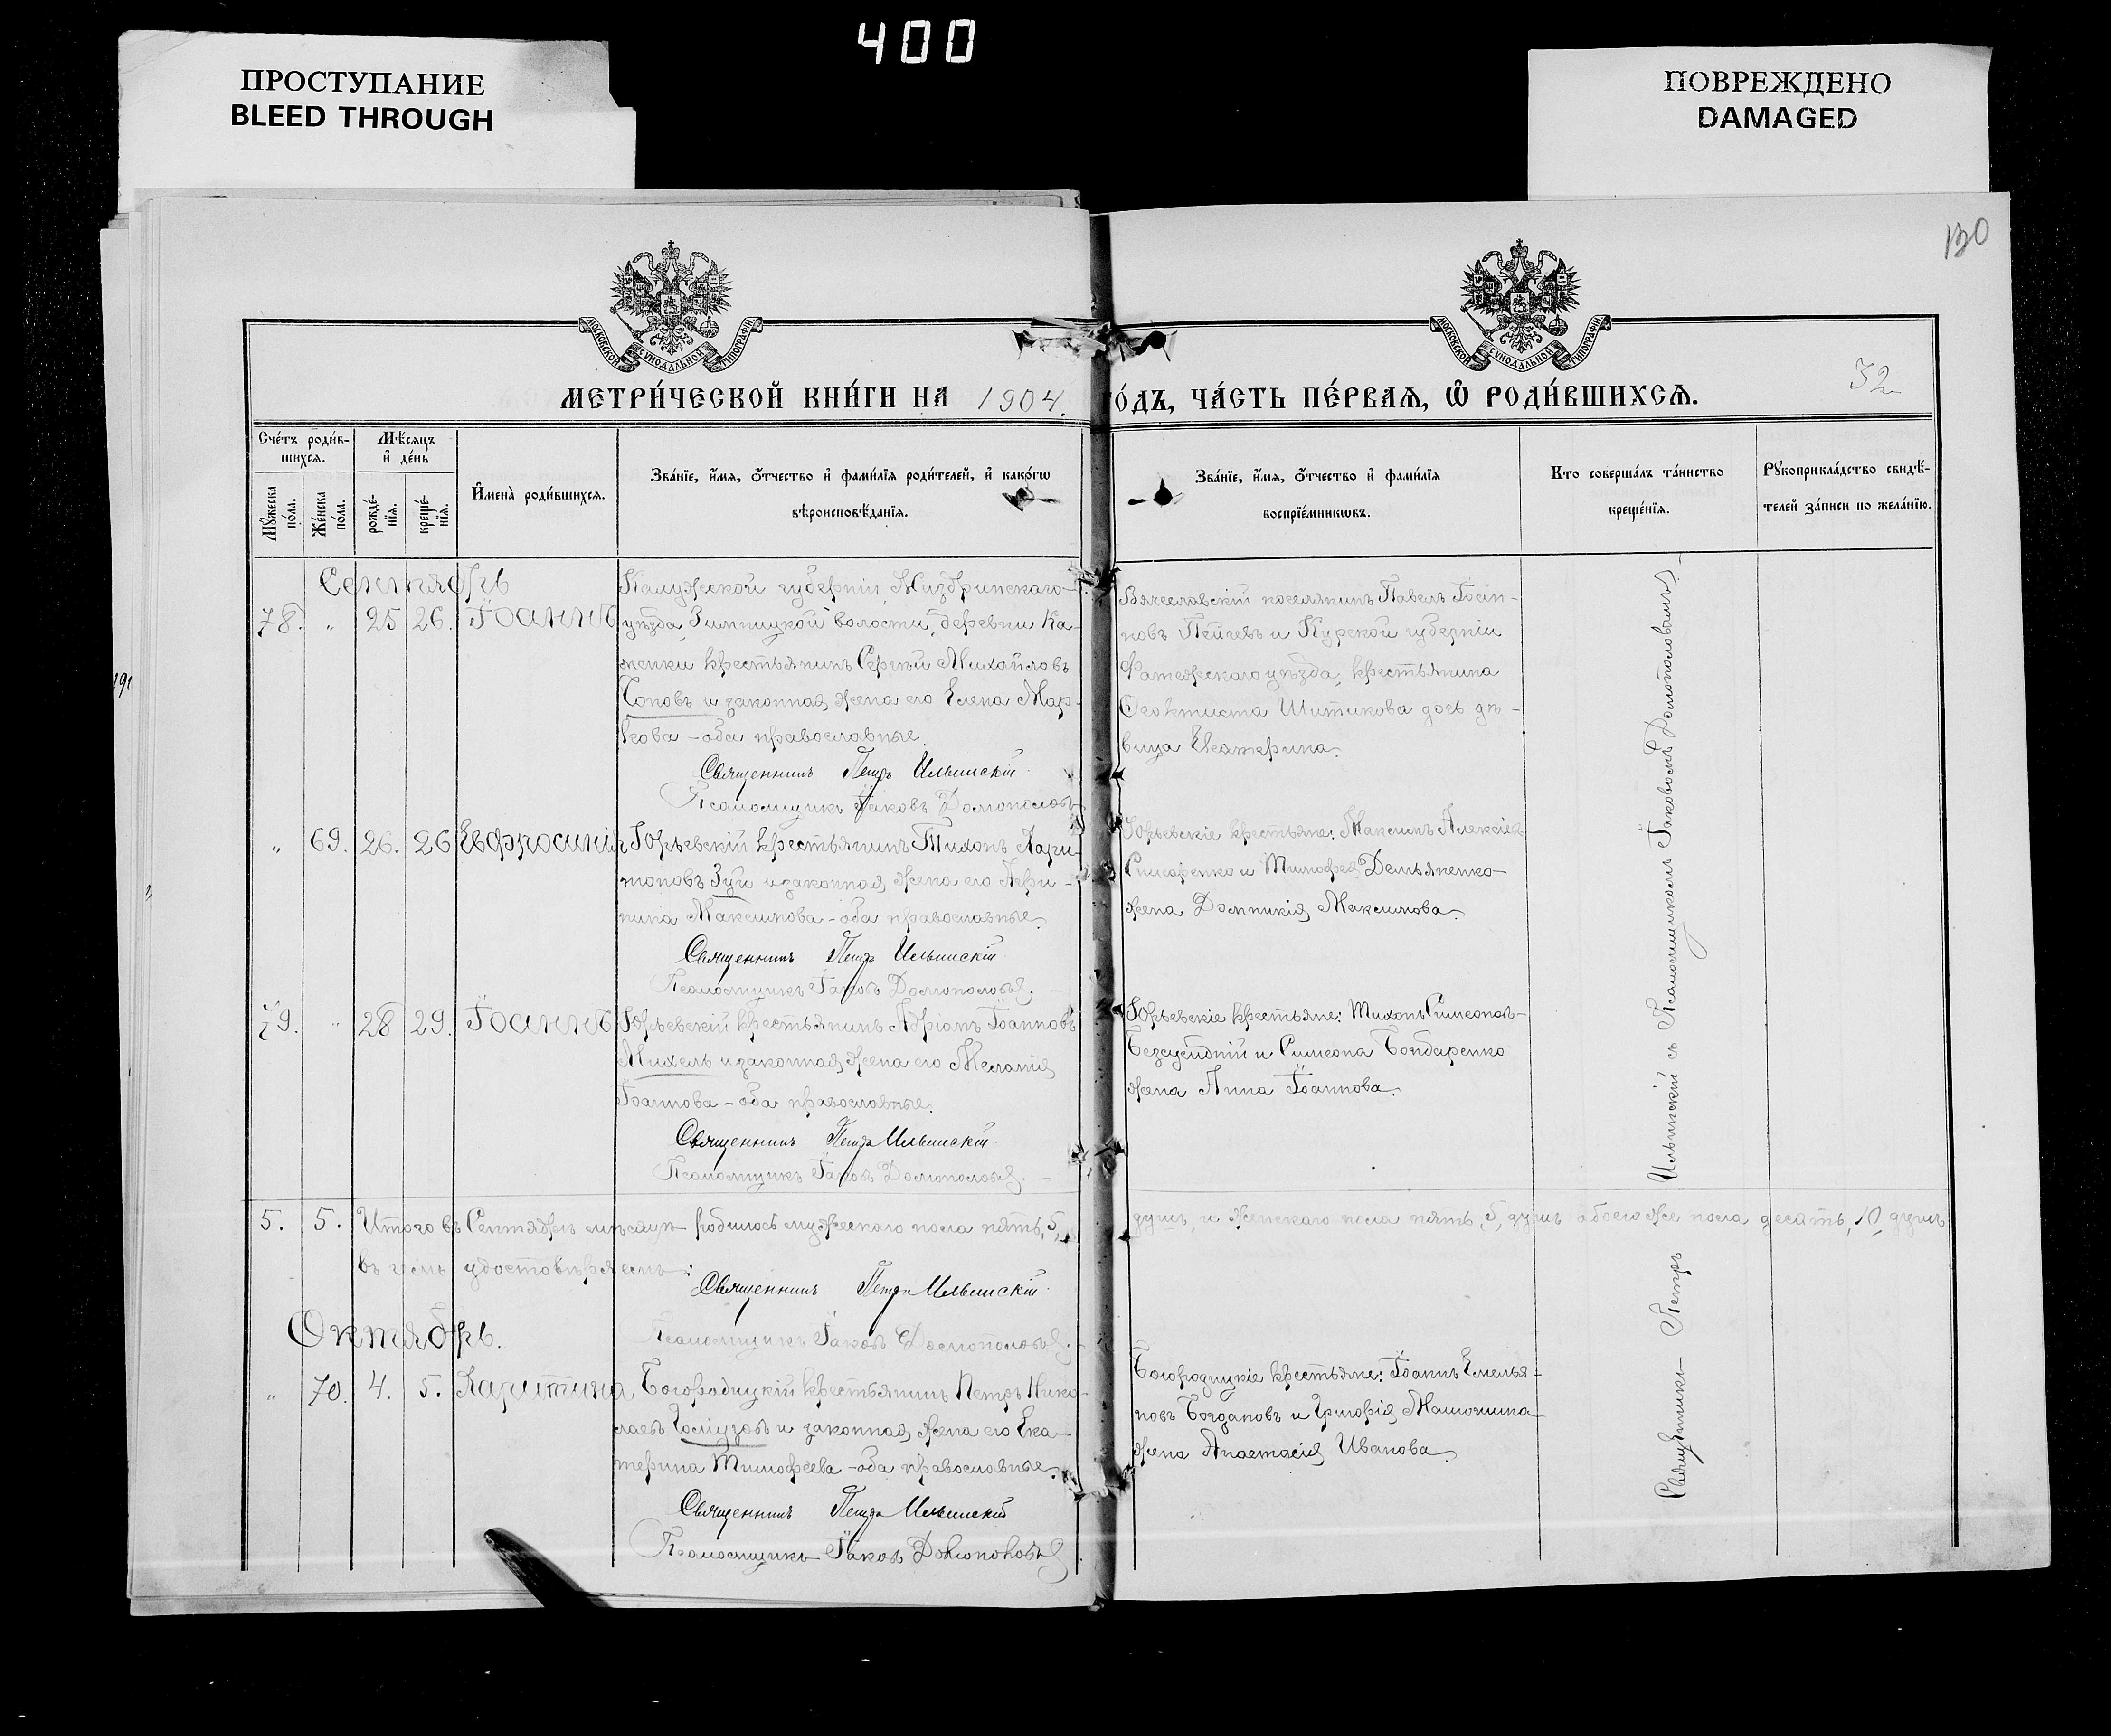 400
ПРОСТУПАНИЕ
BLEED THROUGH
ПОВРЕЖДЕНО
DAMAGED
130
МОСКОВСКОЙ СУНОДАЛЬНОЙ ТИПОГРАФІИ
МОСКОВСКОЙ СУНОДАЛЬНОЙ ТИПОГРАФІИ
32
МЕТРИ́ЧЕСКОЙ КНИ́ГИ НА 1904. ГО́ДЪ, ЧА́СТЬ ПЕ́РВАЯ, Ѡ҆ РОДИ́ВШИХСЯ.
Сче́тъ роди́в-
шихся.
Мꙋ́жеска по́ла.
Же́нска по́ла.
Мѣ́сяцъ
и҆ де́нь
рожде́-
нїя.
креще́-
нїя.
И҆мена̀ роди́вшихся.
Зва́нїе, и҆́мя, ѻ҆́тчество и҆ фами́лїя роди́телей, и҆ како́гѡ
вѣроисповѣ́данїя.
Зва́нїе, и҆́мя, ѻ҆́тчество и҆ фами́лїя
воспрїе́мникѡвъ.
Кто соверша́лъ та́инство
креще́нїя.
Рꙋкоприкла́дство свидѣ́-
телей за́писи по жела́нїю.
Сентябрь
78. " 25 26. Іоаннъ
Калужской губерніи, Жиздринскаго
уѣзда, Зимницкой волости, деревни Ка-
менки крестьянинъ Сергѣй Михайловъ
Поповъ и законная жена его Елена Мар-
кова – оба православные.
Священникъ Петръ Ильинскій
Псаломщикъ Іаковъ
Вячеславскій поселянинъ Павелъ Іосіп-
повъ Пейчевъ и Курской губерніи
Фатежскаго уѣзда, крестьянина
Ѳеоктиста Шитикова дочь дѣ-
вица Екатерина.
" 69. 26. 26 Евфросинія
Юрьевскій крестьянинъ Тихонъ Хари-
тоновъ Зуй и законная жена его Агри-
пина Максимова – оба православные.
Священникъ Петръ Ильинскій
Псаломщикъ Іаковъ
Юрьевскіе крестьяне: Максимъ Алексіевъ
и Тимофея Демьяненко
жена Домникія Максимова.
79. " 28 29. Іоаннъ
Юрьевскій крестьянинъ Адріанъ Іоанновъ
Михель и законная жена его Меланія
Іоаннова – оба православные.
Священникъ Петръ Ильинскій
Псаломщикъ Іаковъ
Юрьевскіе крестьяне: Тихонъ Симеоновъ
и Симеона Бондаренко
жена Анна Іоаннова.
5. 5. Итого въ Сентябрѣ мѣсяцѣ родилось мужескаго пола пять, 5, душъ, и женскаго пола пять, 5, душъ, обоего же пола десять, 10, душъ
въ чемъ удостовѣряемъ:
Священникъ Петръ Ильинскій
Псаломщикъ Іаковъ
Октябрь.
" 70. 4. 5. Харитина
Богородицкій крестьянинъ Петръ Нико-
лаевъ и законная жена его Ека-
терина Тимофеева – оба православные.
Священникъ Петръ Ильинскій
Псаломщикъ Іаковъ
Богородицкіе крестьяне: Іоаннъ Емелья-
новъ Богдановъ и Григорія
жена Анастасія Иванова.
Священникъ Петръ Ильинскій съ Псаломщикомъ Іаковомъ